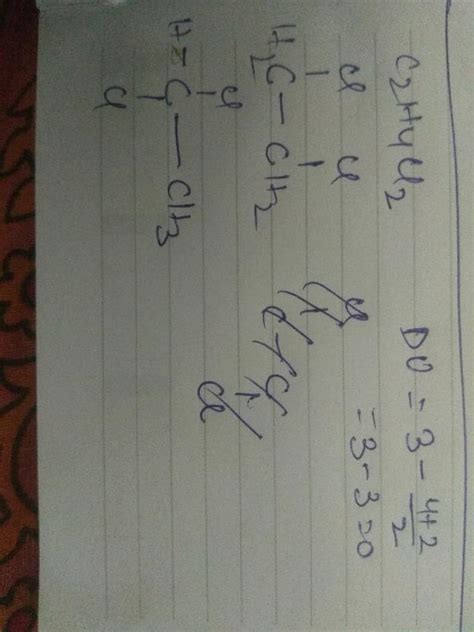 C2H4Cl2
DU = 3 - 4+2/2
= 3-3=0
Cl Cl
H2C — CH2
Cl
H-C — CH3
Cl